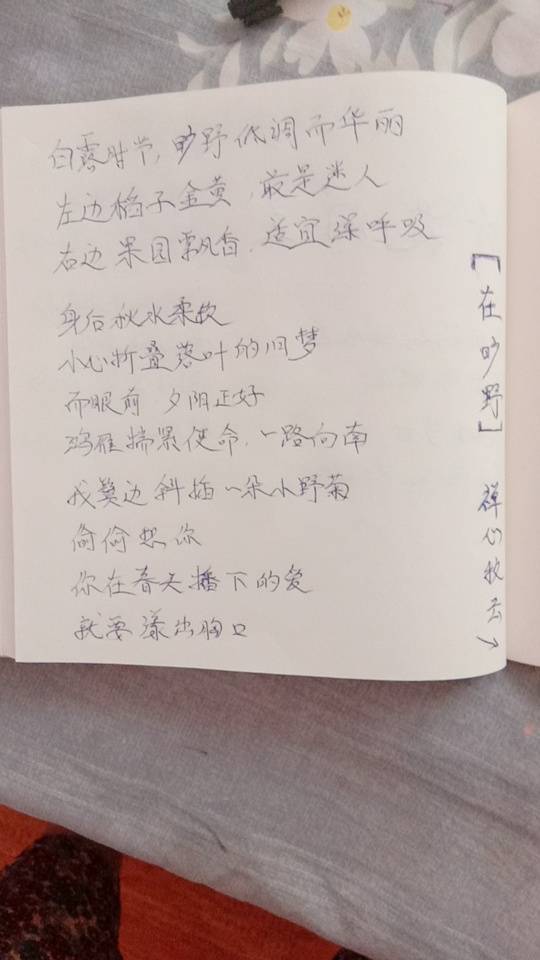 白露时节,旷野低调而华丽
左边稻子金黄,最是迷人
右边果园飘香,适宜深呼吸
身后秋水柔软
小心折叠落叶的旧梦
而眼前 夕阳正好
鸿雁揣紧使命,一路向南
我鬓边斜插一朵小野菊
偷偷想你
你在春天播下的爱
就要漾出胸口
「在旷野」 禅心牧云